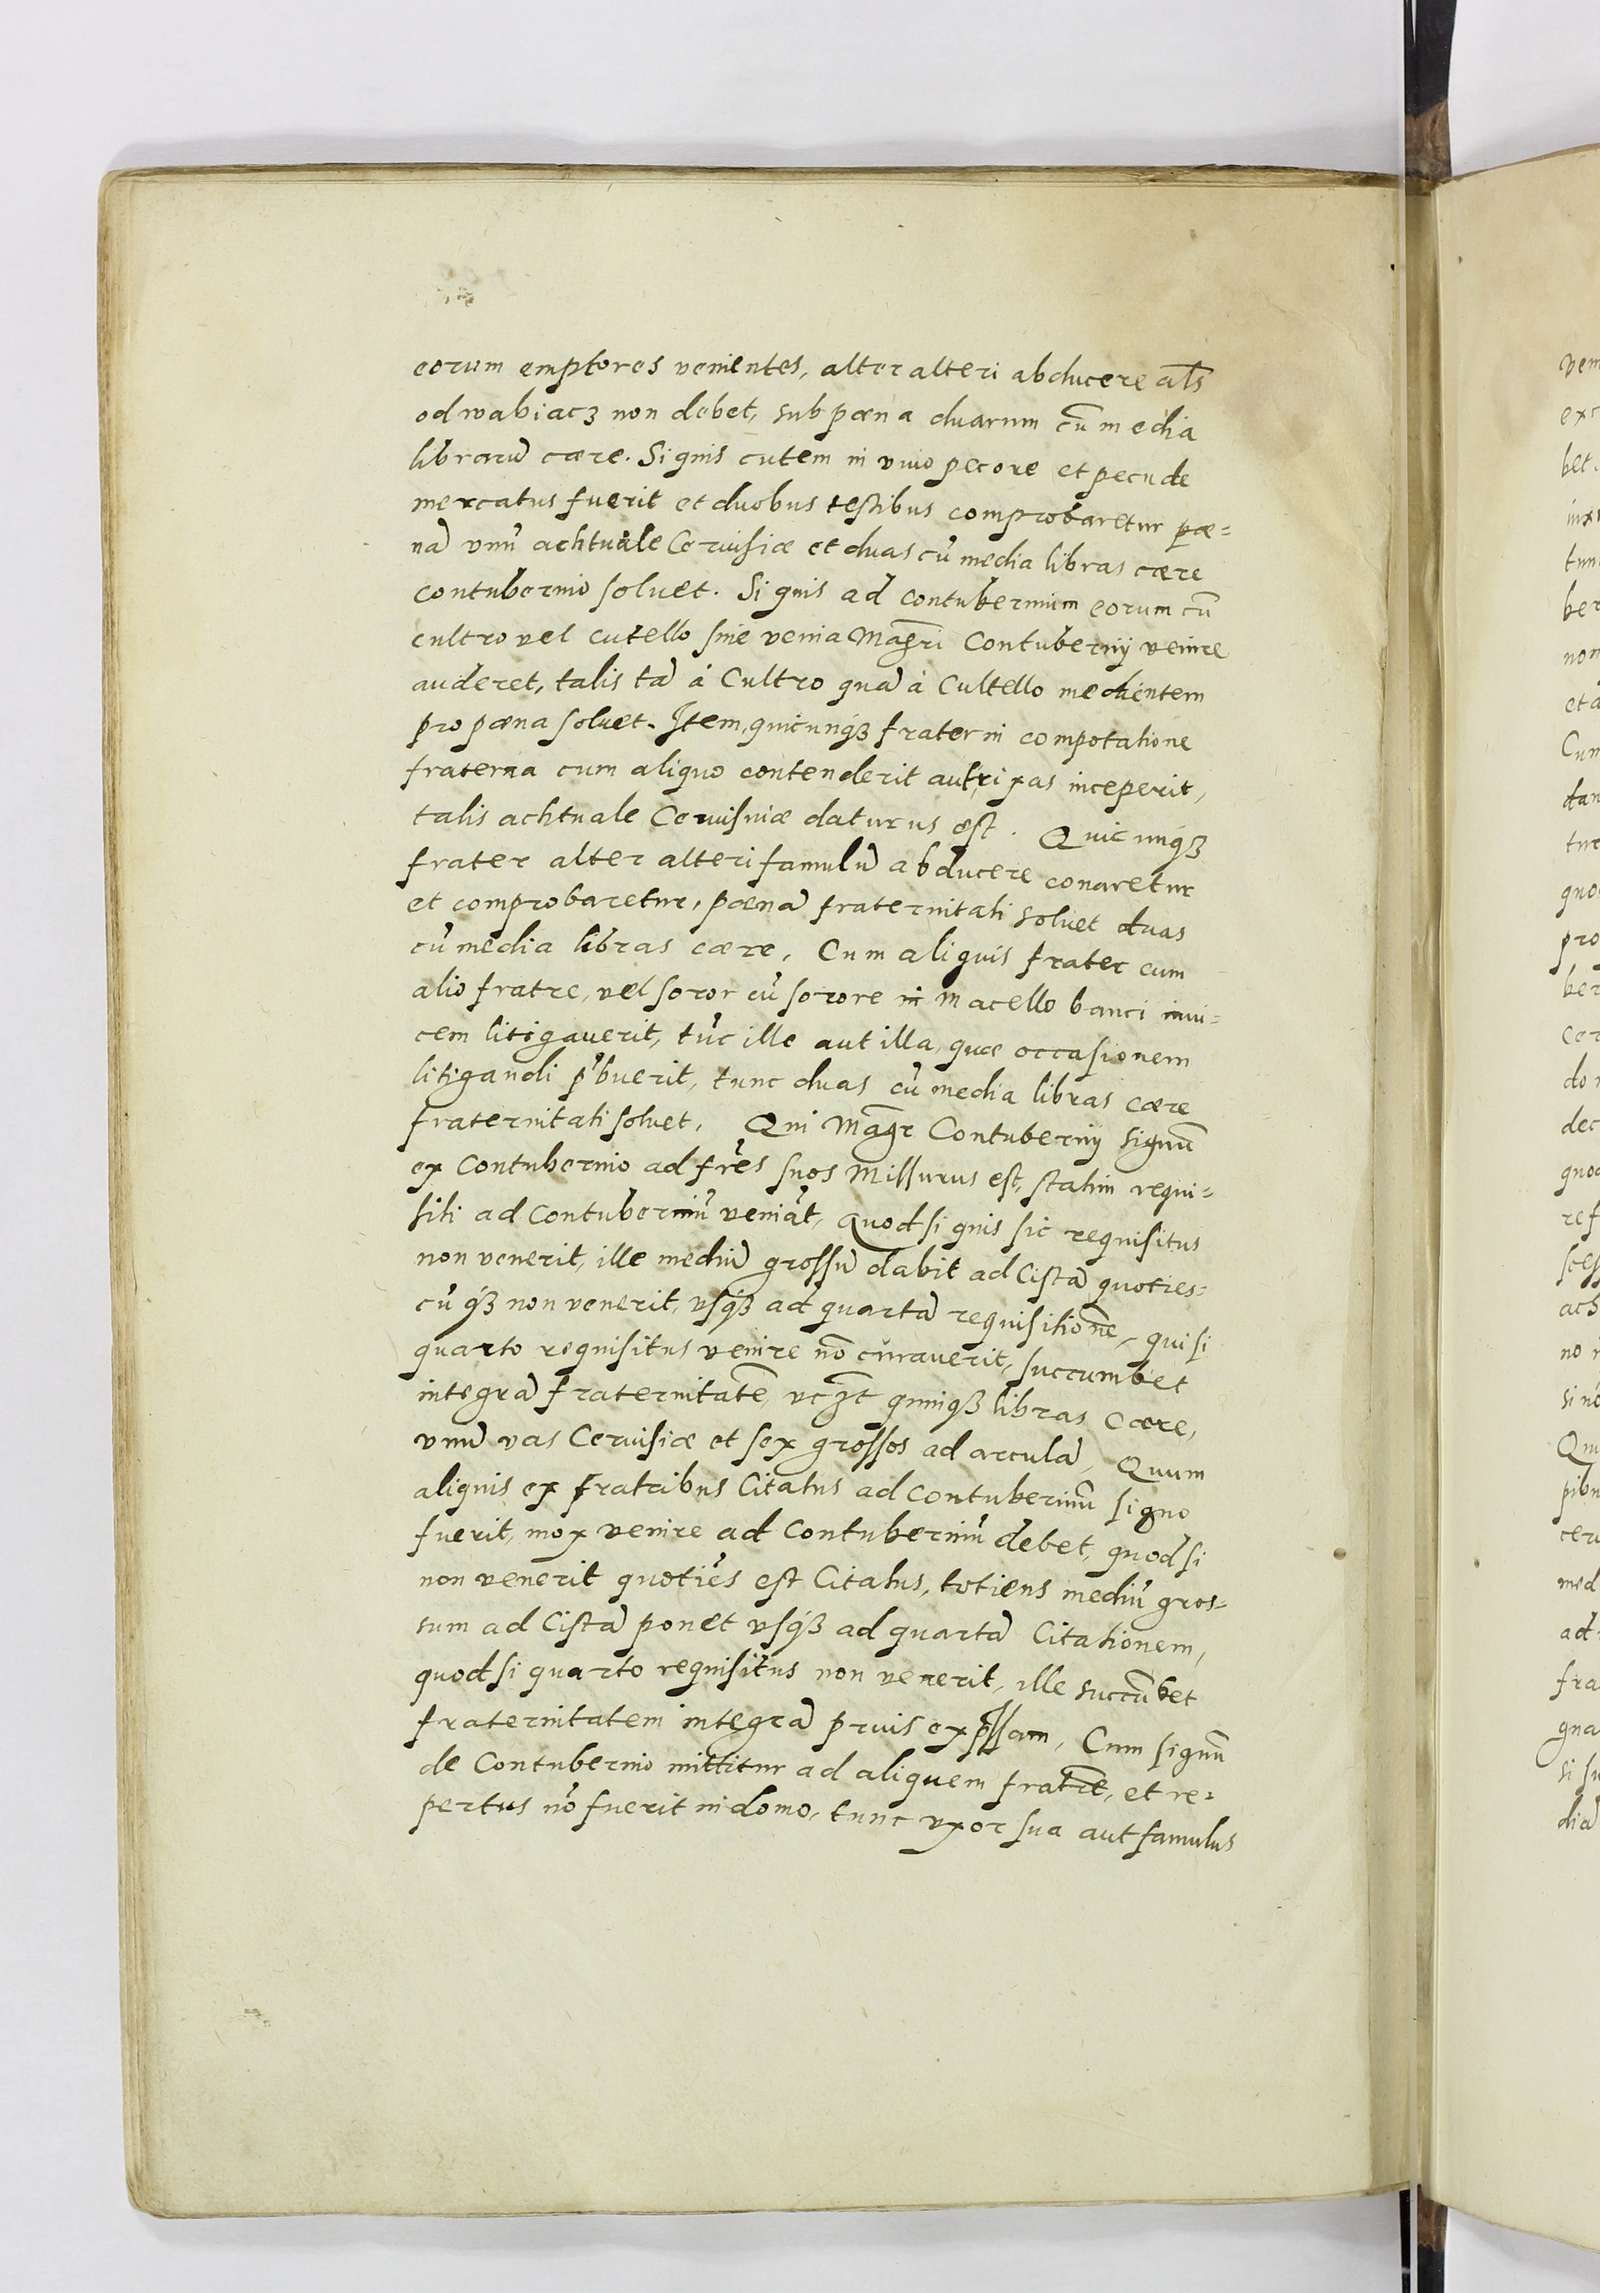 eorum emptores venientes, alter alteri abducere als̄
odwabiacz non debet, sub pœna duarum cū media
librarū cære. Si quis cutem in viuo pecore et pecude
mercatus fuerit et duobus testibus comprobaretur pœ=
nā vnū achtuale Ceruisiæ et duas cū media libras cære
contubernio soluet. Si quis ad contubernium eorum cū
cultro vel cutello sine venia Magr̄i Contubernij venire
auderet, talis tā à Cultro quā à Cultello medientem
pro pœna soluet. Item, quicunqȝ frater in compotatione
fraterna cum aliquo contenderit aut rixas inceperit,
talis achtuale Ceruisiæ daturus est. Quicunqȝ
frater alter alteri famulū abducere conaretur
et comprobaretur, pœnā fraternitati soluet duas
cū media libras cære, Cum aliquis frater cum
alio fratre, vel soror cū sorore in Macello banci inui=
cem litigauerit, tūc ille aut illa, quæ occasionem
litigandi p̄buerit, tunc duas cū media libras cære
fraternitati soluet, Qui Magr̄ Contubernij signū
ex Contubernio ad fr̄es suos Missurus est, statim requi=
siti ad Contuberniū veniāt, Quod si quis sic requisitus
non venerit, ille mediū grossū dabit ad Cistā quoties=
cūqȝ non venerit, vsqȝ ad quartā requisitionē, qui si
quarto requisitus venire nō curauerit, succumbet
integrā fraternitatē, vcȝt quinqȝ libras Cære,
vnū vas Ceruisiæ et sex grossos ad arculā, Quum
aliquis ex fratribus Citatus ad Contuberniū signo
fuerit, mox venire ad Contuberniū debet, quod si
non venerit quoties est Citatus, totiens mediū gros=
sum ad Cistā ponet vsqȝ ad quartā Citationem,
quod si quarto requisitus non venerit, ille succūbet
fraternitatem integrā prius exp̄ssam, Cum signū
de Contubernio mittitur ad aliquem fratrē, et re=
pertus nō fuerit in domo, tunc vxor sua aut famulus